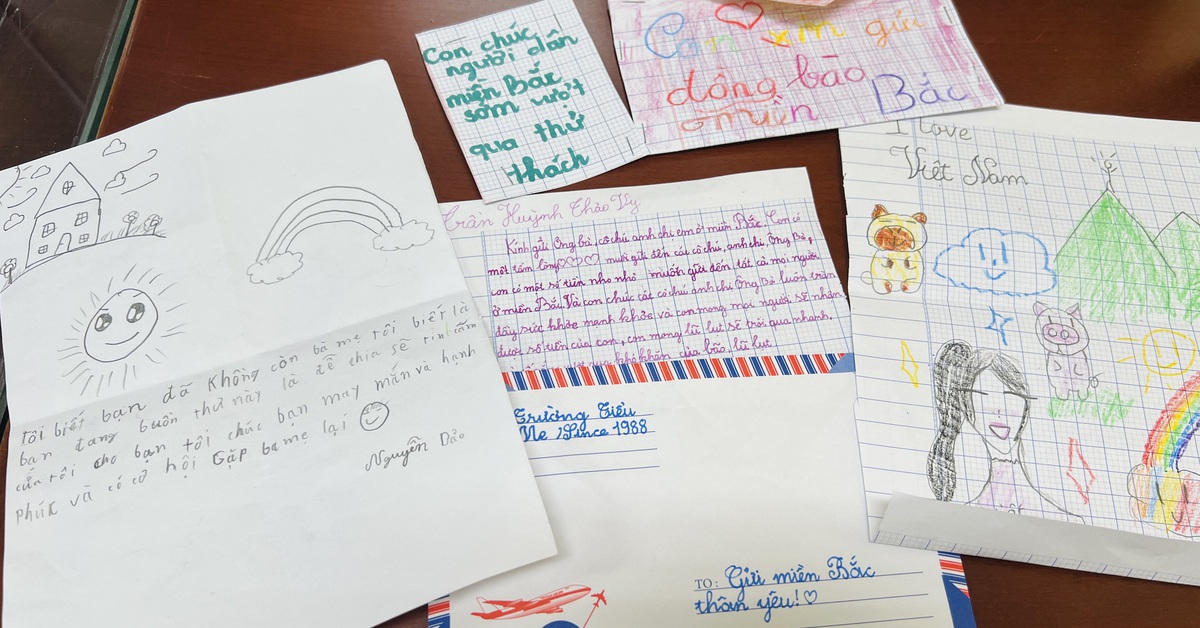 Con chúc
người dân
miền Bắc
sớm vượt
qua thử
thách
Con xin gửi
đồng bào
miền Bắc
I love
Việt Nam
Trần Huỳnh Thảo Vy
Kính gửi Ông bà, cô chú anh chị em ở miền Bắc. Con có
một tấm lòng muốn gửi đến các cô chú, anh chị, Ông Bà,
con có một số tiền nho nhỏ muốn gửi đến tất cả mọi người
ở miền Bắc. Và con chúc các cô chú anh chị Ông Bà luôn tràn
đầy sức khỏe mạnh khỏe và con mong mọi người sẽ nhận
được số tiền của con, con mong lũ lụt sẽ trôi qua nhanh.
qua khó khăn của bão, lũ lụt
tôi biết bạn đã không còn ba mẹ tôi biết là
bạn đang buồn thư này là để chia sẽ tìn cảm
của tôi cho bạn tôi chúc bạn may mắn và hạnh
phúc và có cơ hội Gặp ba mẹ lại
Nguyễn Dảo
Trường Tiểu
Me /Since 1988
TO: Gửi miền Bắc
thân yêu!